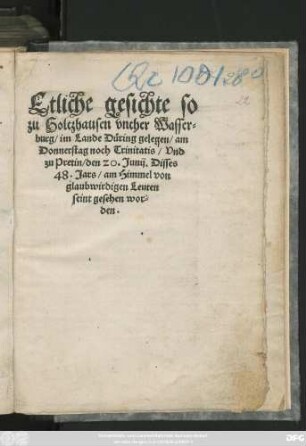 Etliche gesichte so
zu Holtzhausen vnther Wasser-
burg/ im Lande Düring gelegen/ am
Donnerstag noch Trinitatis/ Vnd
zu Pretin/ den 20. Junij. Disses
48. Jars/ am Himmel von
glaubwirdigen Leuten
seint gesehen wor-
den.